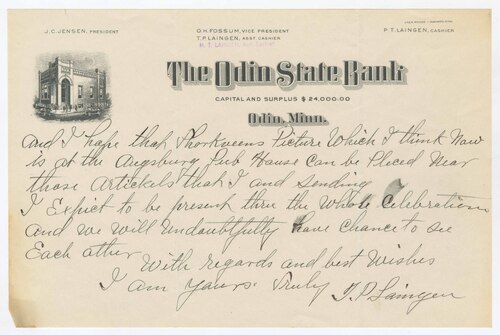 J.C. JENSEN, PRESIDENT
O.H. FOSSUM, VICE PRESIDENT
T.P. LAINGEN, ASST. CASHIER
P.T. LAINGEN, CASHIER
The Odin State Bank
CAPITAL AND SURPLUS $ 24,000.00
Odin, Minn.
and I hope that Thorkveens Picture Which I think Now
is at the Augsburg Pub House can be Pleced Near
those Artickels that I and sending
I Expict to be present thru the Whole Celebration
and we will Undoubtfully have chance to see
Each other
With regards and best Wishes
I am yours Truly T.P. Laingen